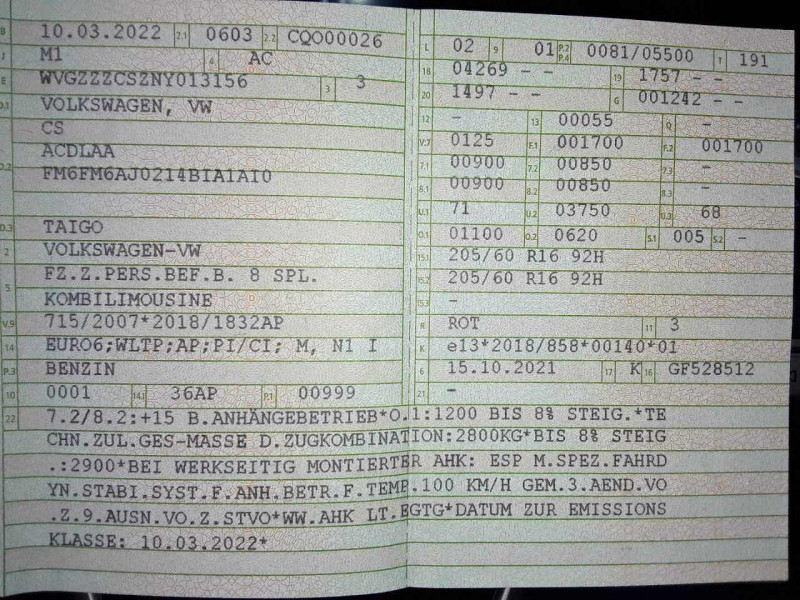 B 10.03.2022 2.1 0603 2.2 CQO00026
J M1 4 AC
E WVGZZZCSZNY013156 3 3
D.1 VOLKSWAGEN, VW
CS
ACDLAA
D.2 FM6FM6AJ0214BIA1AI0
D.3 TAIGO
2 VOLKSWAGEN-VW
FZ.Z.PERS.BEF.B. 8 SPL.
5 KOMBILIMOUSINE
V.9 715/2007*2018/1832AP
14 EURO6;WLTP;AP;PI/CI; M, N1 I
P.3 BENZIN
10 0001 14.1 36AP P.1 00999
L 02 9 01 P.2 P.4 0081/05500 T 191
18 04269 - - 19 1757 - -
20 1497 - - G 001242 - -
12 - 13 00055 Q -
V.7 0125 F.1 001700 F.2 001700
7.1 00900 7.2 00850 7.3 -
8.1 00900 8.2 00850 8.3 -
U.1 71 U.2 03750 U.3 68
O.1 01100 O.2 0620 S.1 005 S.2 -
15.1 205/60 R16 92H
15.2 205/60 R16 92H
15.3 -
R ROT 11 3
K e13*2018/858*00140*01
6 15.10.2021 17 K 16 GF528512
21 -
22 7.2/8.2:+15 B.ANHÄNGEBETRIEB*O.1:1200 BIS 8% STEIG.*TE
CHN.ZUL.GES-MASSE D.ZUGKOMBINATION:2800KG*BIS 8% STEIG
.:2900*BEI WERKSEITIG MONTIERTER AHK: ESP M.SPEZ.FAHRD
YN.STABI.SYST.F.ANH.BETR.F.TEMP.100 KM/H GEM.3.AEND.VO
.Z.9.AUSN.VO.Z.STVO*WW.AHK LT.EGTG*DATUM ZUR EMISSIONS
KLASSE: 10.03.2022*